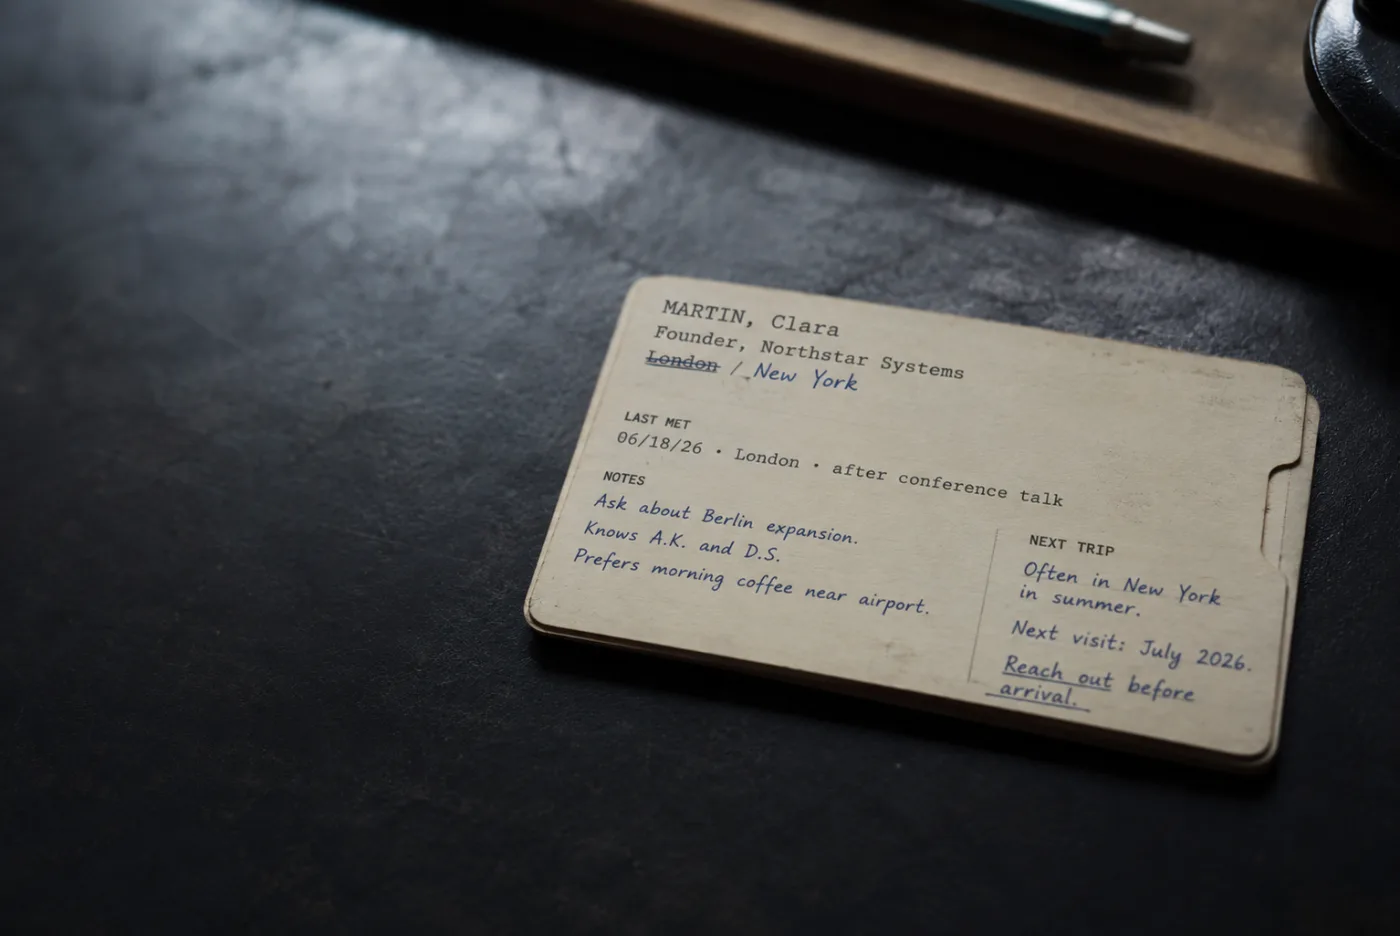 MARTIN, Clara
Founder, Northstar Systems
London / New York
LAST MET
06/18/26 • London • after conference talk
NOTES
Ask about Berlin expansion.
Knows A.K. and D.S.
Prefers morning coffee near airport.
NEXT TRIP
Often in New York
in summer.
Next visit: July 2026.
Reach out before
arrival.